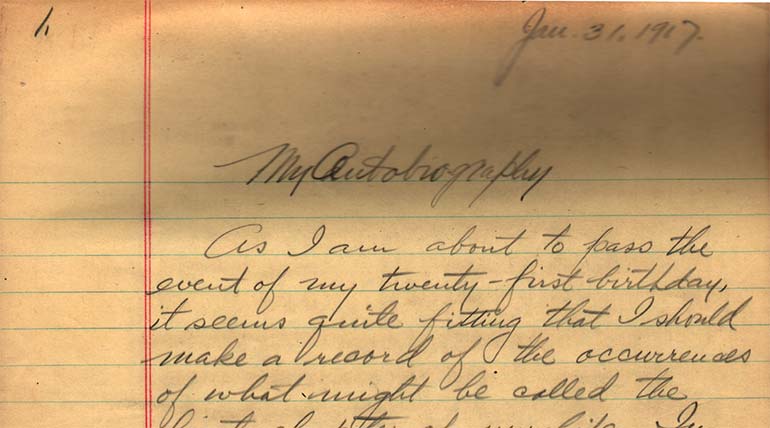 1.
Jan. 31, 1917.
My Autobiography
As I am about to pass the
event of my twenty-first birthday,
it seems quite fitting that I should
make a record of the occurrences
of what might be called the
first chapter of my life. In